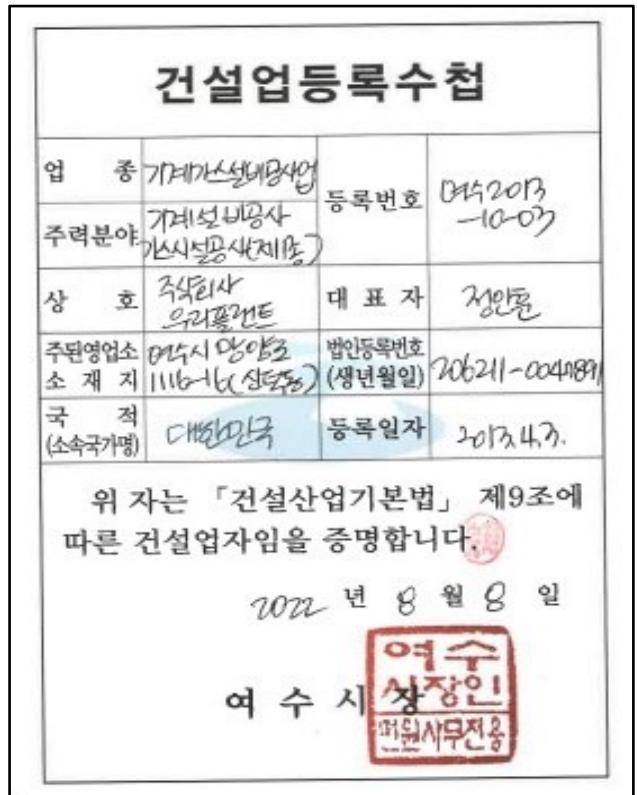 건설업등록수첩
업 종 기계가스설비공사업
등록번호 여수2013
-10-03
주력분야 기계설비공사
가스시설공사(제1종)
상 호 주식회사
우리플랜트
대 표 자 정안훈
주된영업소
소 재 지 여수시 망양로
1116-16(신덕동)
법인등록번호
(생년월일) 206211-0041891
국 적
(소속국가명) 대한민국
등록일자 2013.4.3.
위 자는 「건설산업기본법」 제9조에
따른 건설업자임을 증명합니다.
2022 년 8 월 8 일
여 수 시 장
여수
시장인
민원사무전용